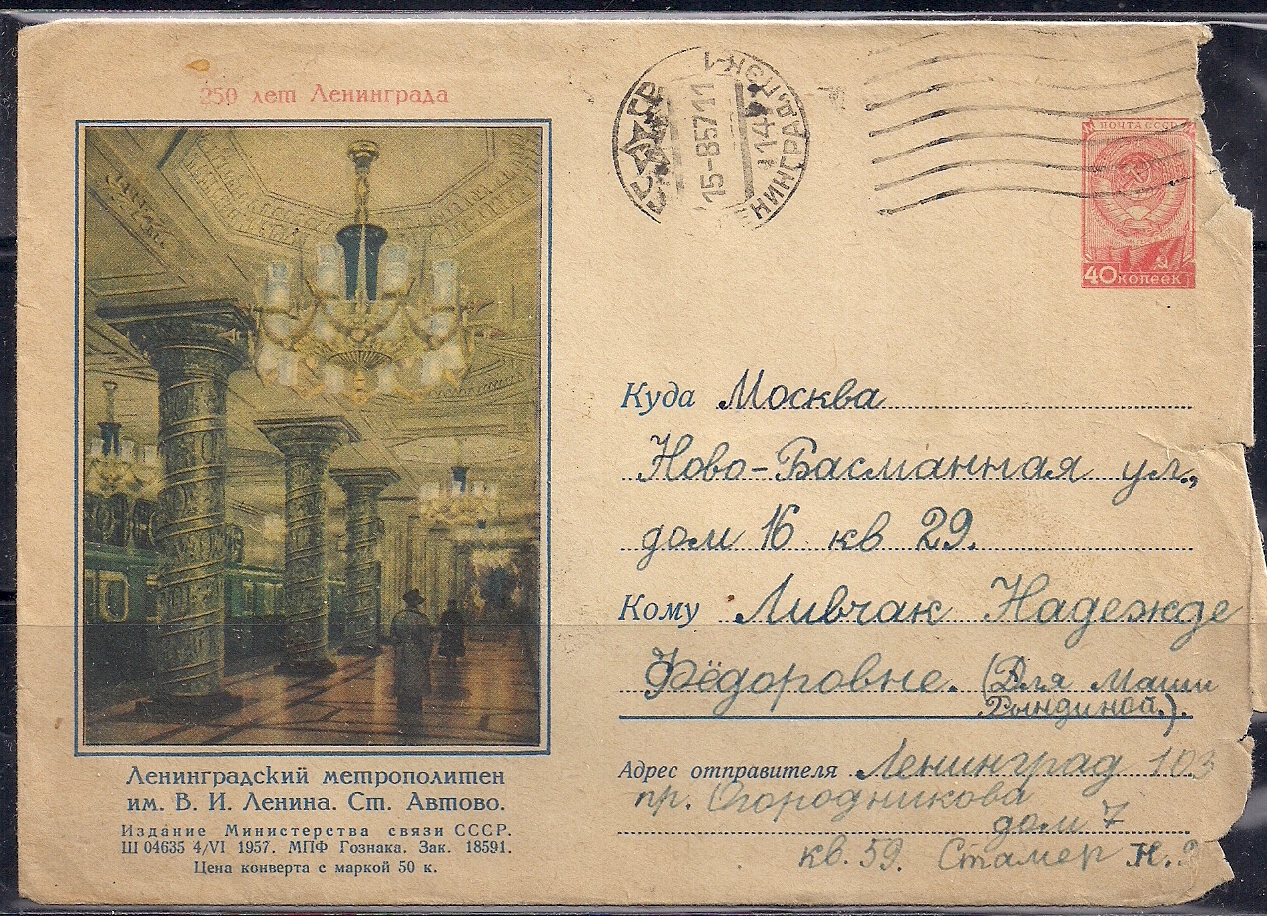 250 лет Ленинграда
СССР
ЛЕНИНГРАД
15-85711
14
ПОЧТА СССР
40 копеек
Куда Москва
Ново-Басманная ул.,
дом 16 кв 29.
Кому Ливчак Надежде
Фёдоровне. (Для Маши
Рындиной.).
Адрес отправителя Ленинград 103
пр. Огородникова
дом 7
кв. 59. Стамер Н.
Ленинградский метрополитен
им. В. И. Ленина. Ст. Автово.
Издание Министерства связи СССР.
Ш 04635 4/VI 1957. МПФ Гознака. Зак. 18591.
Цена конверта с маркой 50 к.